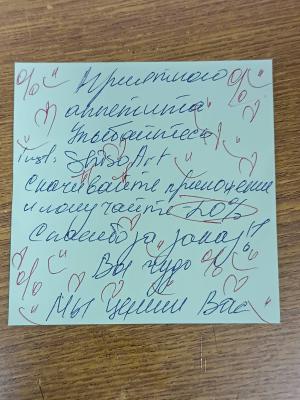 Приятного
аппетита
Улыбайтесь
inst: ShisoArt
скачивайте приложение
и получайте 20%
Спасибо за заказ!!
Вы чудо
Мы ценим Вас